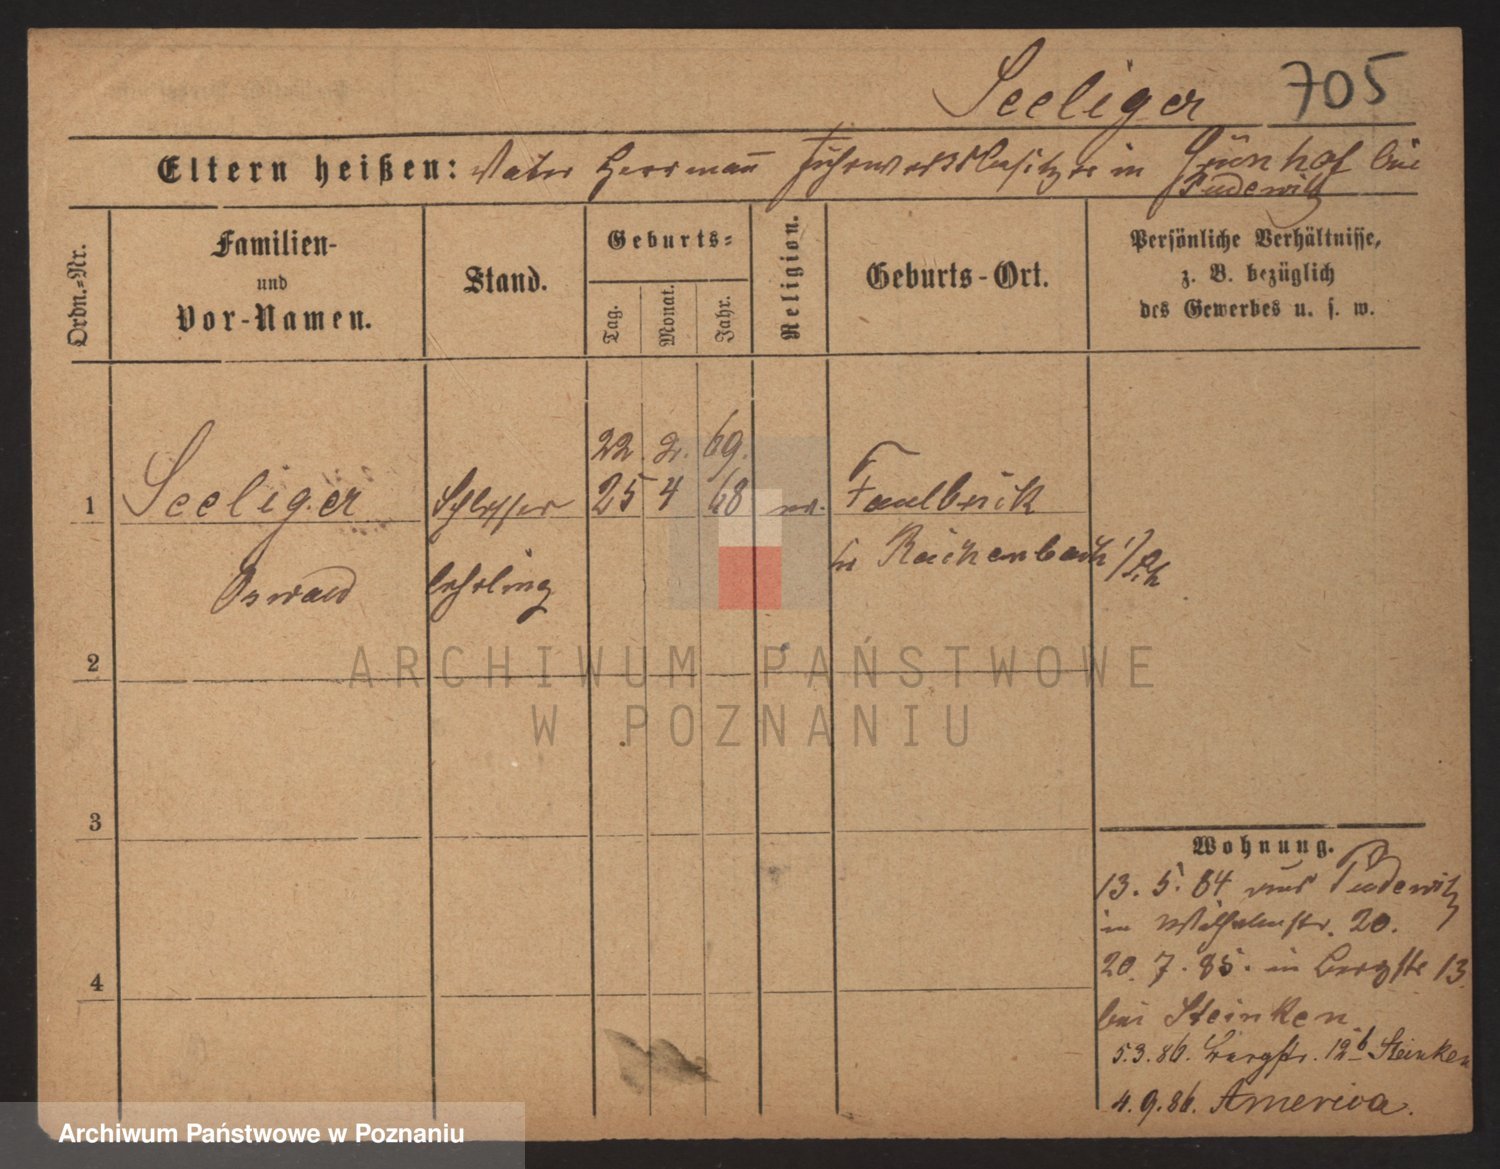 Seeliger 705
Eltern heißen: Vater Herrmann Fuhrwerksbesitzer in Grünhof bei
Pudewitz
Ordn.-Nr.
Familien-
und
Vor-Namen.
Stand.
Geburts-
Tag.
Monat.
Jahr.
Religion.
Geburts-Ort.
Persönliche Verhältnisse,
z. B. bezüglich
des Gewerbes u. s. w.
22. 2. 69.
1 Seeliger Schlosser 25 4 68 ev. Faulbrück
Oswald lehrling in Reichenbach
2
ARCHIWUM PAŃSTWOWE
W POZNANIU
3
Wohnung.
13. 5. 84 aus Pudewitz
in Wilhelmstr. 20.
20. 7. 85. in Bergstr 13
bei Steinken
4
5.3.86. Bergstr. 12b Steinken
4.9.86. America.
Archiwum Państwowe w Poznaniu